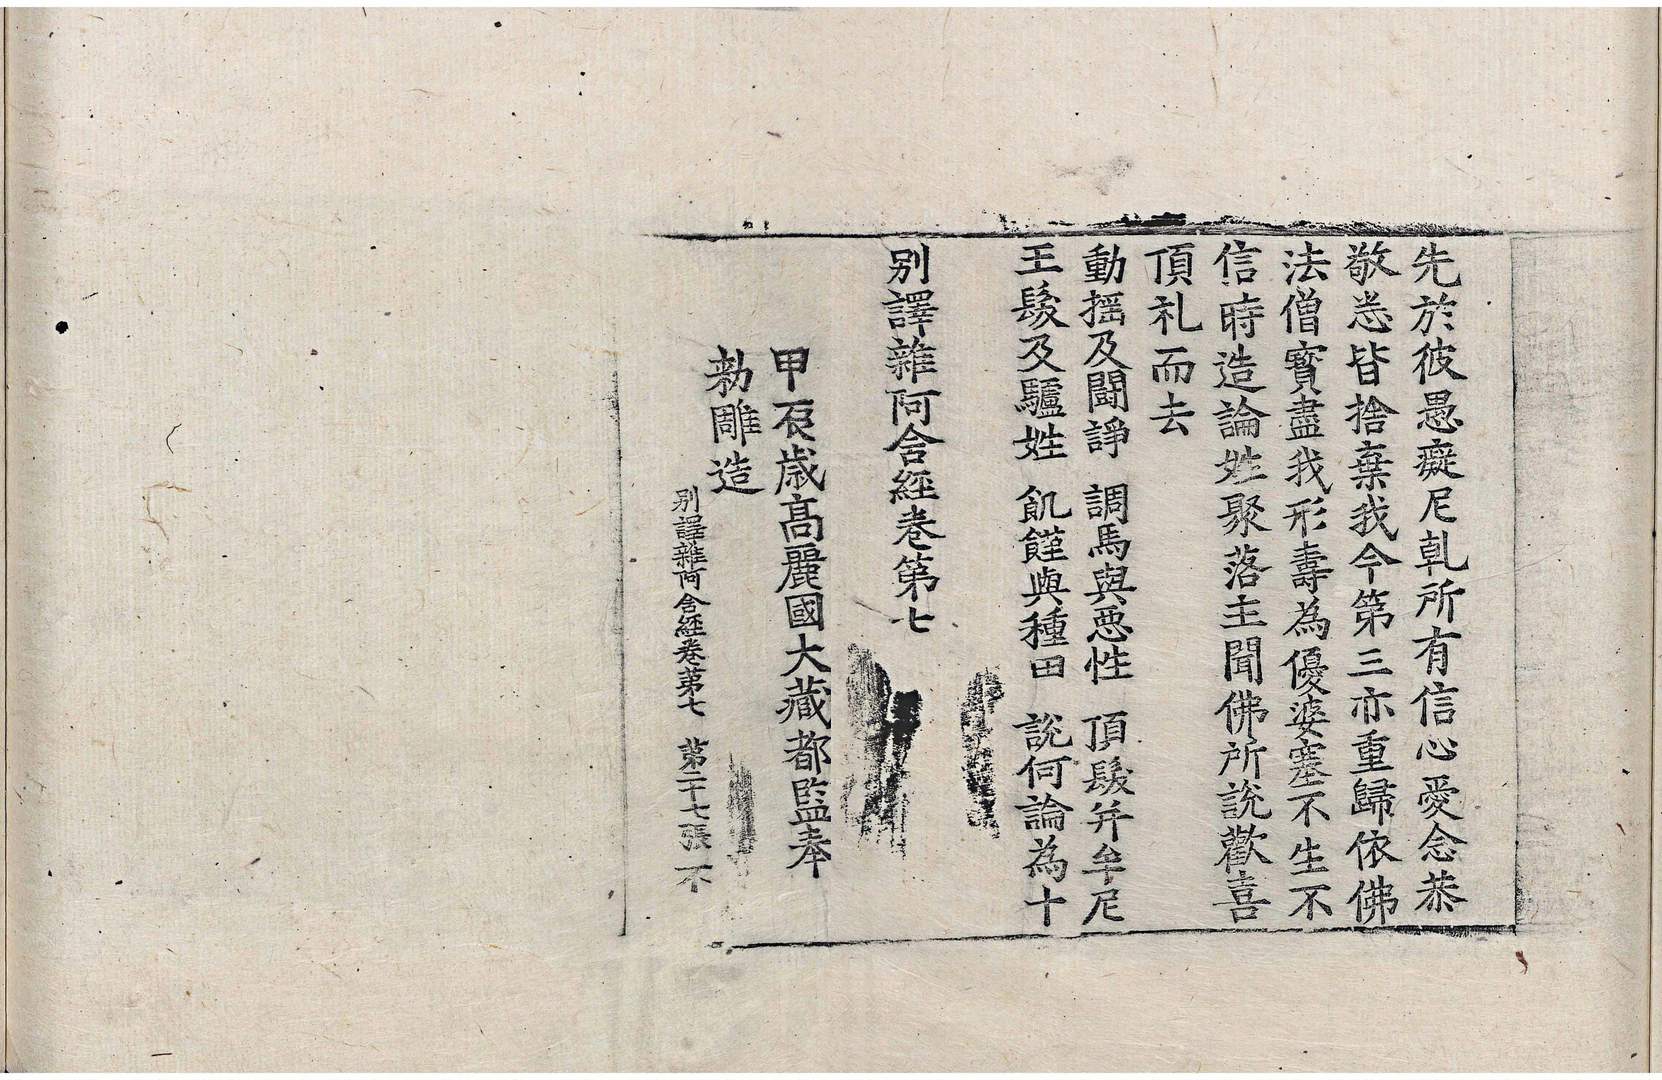 先於彼愚癡尼乹所有信心愛念恭
敬悉皆捨棄我今第三亦重歸依佛
法僧寳盡我形壽為優婆塞不生不
信時造論姓聚落主聞佛所說歡喜
頂礼而去
動揺及闘諍 調馬與惡性 頂髮并牟尼
王髮及驢姓 飢饉與種田 說何論為十
别譯雜阿含經卷第七
甲辰歲髙麗國大藏都監奉
勑雕造
別譯雜阿含經卷第七 第二十七張 不